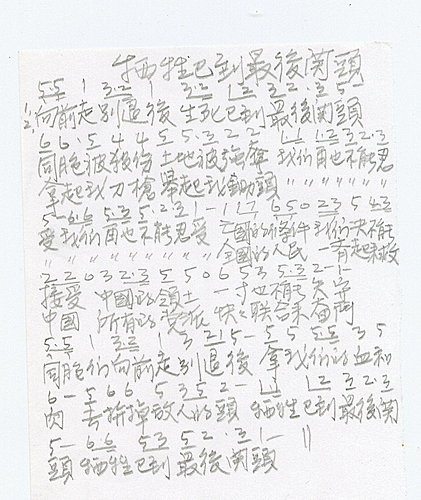 牺牲已到最後関頭
5 5 1 3·2 1 3·2 1 2 3 2·3 5-
1/2. 向前走別退後 生死已到最後関頭
6 6·5 4 4 5 5·3 2 2 1 1 1·2 3 2·3
同胞被殺伤 土地被強奪 我们再也不能忍
拿起我刀槍 舉起我鋤頭 〃 〃 〃 〃 〃 〃 〃
5- 6·6 5·3 5·2·3 1- 1 1 7 6 5 0 2 3 5 4 3
受我们再也不能忍受 亡國的條件我们决不能
〃 〃 〃 〃 〃 〃 〃 〃 全國的人民 一齊起來救
2 2 0 3 2·3 5 5 0 6 5 3 5·3 2-1-
接受 中國的領土 一寸也不能失守
中國 所有的党派 快快联合來奋鬥
5 5 1 3·2 1 3 2 1 5- 5 5 5 5 3 5
同胞们向前走別退後 拿我们的血和
6- 5 6 6 5 3 5 2- 1 1 1 2 3 2·3
肉 去拚掉敌人的頭 牺牲已到最後関
5- 6·6 5 3 5 2·3 1- ||
頭 牺牲已到最後関頭